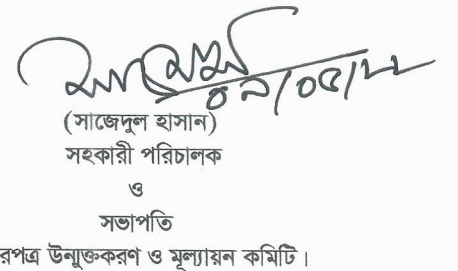 ০৯/০৫/২২
(সাজেদুল হাসান)
সহকারী পরিচালক
ও
সভাপতি
রপত্র উন্মুক্তকরণ ও মূল্যায়ন কমিটি।